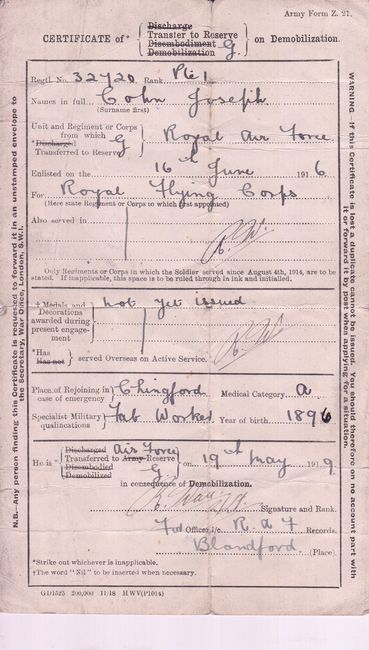 Army Form Z. 21.
CERTIFICATE of* { Discharge
Transfer to Reserve
Disembodiment G
Demobilization } on Demobilization.
Regtl. No. 32720 Rank Pte 1
Names in full Cohn Joseph
(Surname first)
Unit and Regiment or Corps
from which
*Discharged
Transferred to Reserve } G Royal Air Force
Enlisted on the 16th June 1916
For Royal Flying Corps
(Here state Regiment or Corps to which first appointed)
Also served in
Only Regiments or Corps in which the Soldier served since August 4th, 1914, are to be
stated. If inapplicable, this space is to be ruled through in ink and initialled.
†Medals and
Decorations
awarded during
present engage-
ment } not yet issued
*Has
Has not } served Overseas on Active Service.
Place of Rejoining in
case of emergency } Chingford Medical Category A
Specialist Military
qualifications } Fab Worker Year of birth 1896
He is { Discharged Air Force
Transferred to Army Reserve
Disembodied G
Demobilized } on 19th May 1919
in consequence of Demobilization.
Signature and Rank.
For Officer i/c R.A.F Records.
Blandford (Place).
*Strike out whichever is inapplicable.
†The word "Nil" to be inserted when necessary.
GD1525 200,000 11/18 HWV(P1014)
N.B.—Any person finding this Certificate is requested to forward it in an unstamped envelope to
the Secretary, War Office, London, S.W.1.
WARNING.—If this Certificate is lost a duplicate cannot be issued. You should therefore on no account part with
it or forward it by post when applying for a situation.